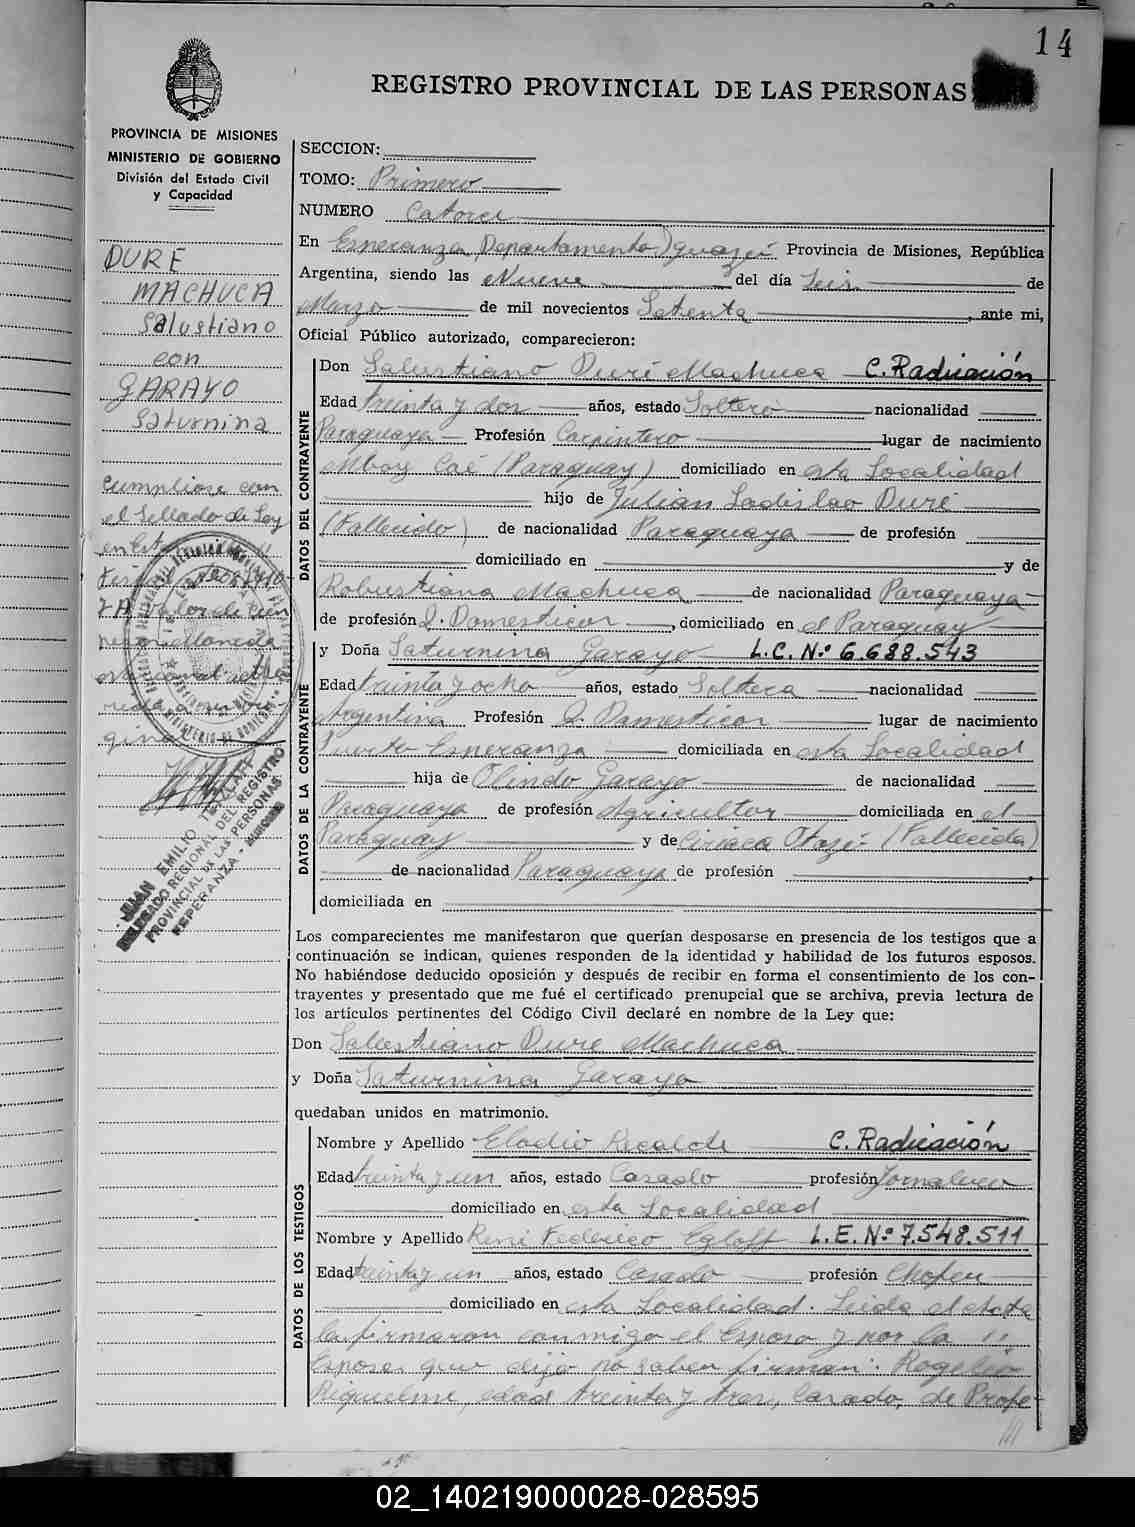 14
REGISTRO PROVINCIAL DE LAS PERSONAS
PROVINCIA DE MISIONES
MINISTERIO DE GOBIERNO
División del Estado Civil
y Capacidad
DURE
MACHUCA
Salustiano
con
GARAYO
Saturnina
cumpliose con
el Sellado de Ley
en Est
valor de
moneda
nacional
JUAN EMILIO
DELEGADO REGIONAL DEL REGISTRO
PROVINCIAL DE LAS PERSONAS
ESPERANZA - MISIONES
SECCION:
TOMO: Primero
NUMERO Catorce
En Esperanza, Departamento Iguazú Provincia de Misiones, República
Argentina, siendo las Nueve del día Seis de
Marzo de mil novecientos Setenta, ante mi,
Oficial Público autorizado, comparecieron:
DATOS DEL CONTRAYENTE
Don Salustiano Duré Machuca C. Radicación
Edad treinta y dos años, estado Soltero nacionalidad
Paraguaya Profesión Carpintero lugar de nacimiento
Mboy Caé (Paraguay) domiciliado en esta Localidad
hijo de Julián Ladislao Duré
(Fallecido) de nacionalidad Paraguaya de profesión
domiciliado en y de
Robustiana Machuca de nacionalidad Paraguaya
de profesión Q. Domesticos, domiciliado en el Paraguay
DATOS DE LA CONTRAYENTE
y Doña Saturnina Garayo L.C. Nº 6.688.543
Edad treinta y ocho años, estado Soltera nacionalidad
Argentina Profesión Q. Domesticos lugar de nacimiento
Puerto Esperanza domiciliada en esta Localidad
hija de Olindo Garayo de nacionalidad
Paraguaya de profesión Agricultor domiciliada en el
Paraguay y de Ciriaca Otazú (Fallecida)
de nacionalidad Paraguaya de profesión
domiciliada en
Los comparecientes me manifestaron que querían desposarse en presencia de los testigos que a
continuación se indican, quienes responden de la identidad y habilidad de los futuros esposos.
No habiéndose deducido oposición y después de recibir en forma el consentimiento de los con-
trayentes y presentado que me fué el certificado prenupcial que se archiva, previa lectura de
los artículos pertinentes del Código Civil declaré en nombre de la Ley que:
Don Salustiano Dure Machuca
y Doña Saturnina Garayo
quedaban unidos en matrimonio.
DATOS DE LOS TESTIGOS
Nombre y Apellido Eladio Recalde C. Radicación
Edad treinta y un años, estado Casado profesión Jornalero
domiciliado en esta Localidad
Nombre y Apellido René Federico Egloff L.E. Nº 7.548.511
Edad treinta y un años, estado Casado profesión Chofer
domiciliado en esta Localidad. Leida el acta
la firmaron conmigo el Esposo y por la "
Esposa que dijo no saber firmar: Rogelio
Riquelme, edad treinta y tres, Casado, de Profe-
02_140219000028-028595